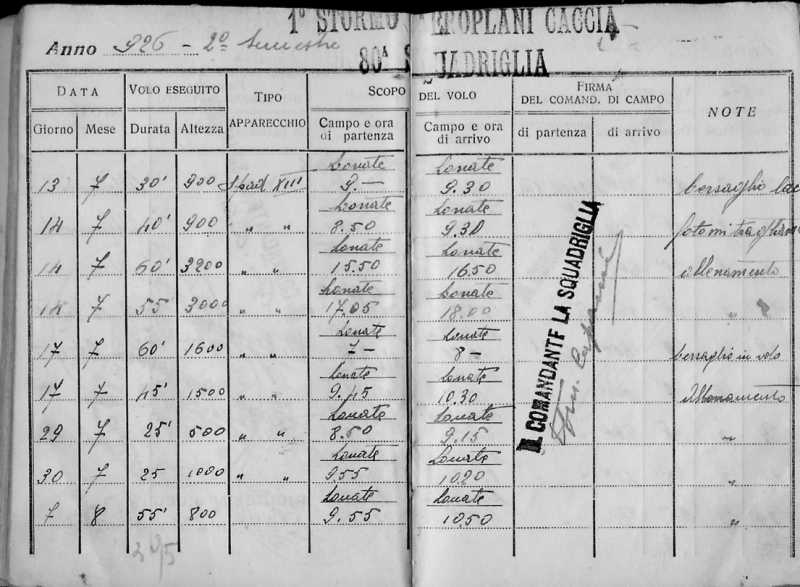 1º STORMO AEROPLANI CACCIA
80ª SQUADRIGLIA
Anno 926 - 2º Semestre
DATA VOLO ESEGUITO TIPO APPARECCHIO SCOPO DEL VOLO FIRMA DEL COMAND. DI CAMPO NOTE
Giorno Mese Durata Altezza Campo e ora di partenza Campo e ora di arrivo di partenza di arrivo
Lonate Lonate
13 7 30' 900 Spad XIII 9.- 9.30 bersaglio
Lonate Lonate
14 7 40' 900 " " 8.50 9.30 fotomitragliatrice
Lonate Lonate
14 7 60' 3200 " " 15.50 16.50 allenamento
Lonate Lonate
14 7 55' 3000 " " 17.05 18.00 " "
Lonate Lonate
17 7 60' 1600 " " 7- 8- bersaglio in volo
Lonate Lonate
17 7 45' 1500 " " 9.45 10.30 Allenamento
Lonate Lonate
29 7 25' 500 " " 8.50 9.15 "
Lonate Lonate
30 7 25 1000 " " 9.55 10.20 "
Lonate Lonate
7 8 55' 800 9.55 10.50 "
IL COMANDANTE LA SQUADRIGLIA